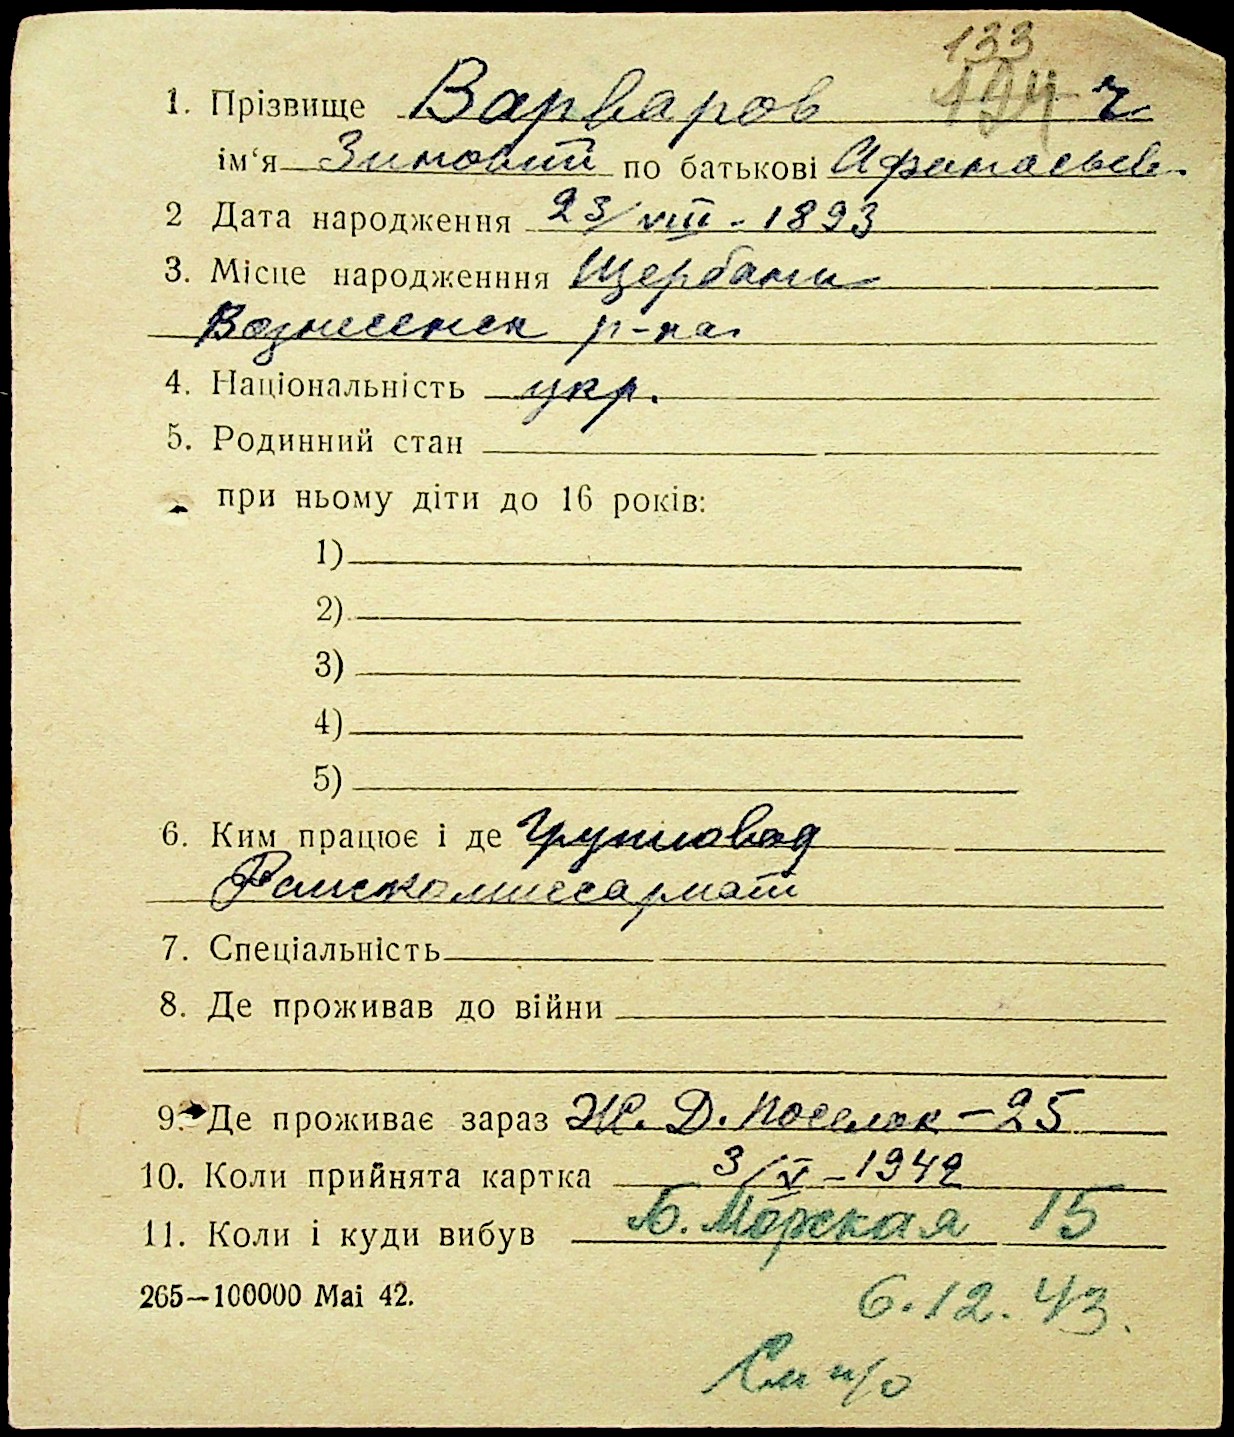 133
194 ч
1. Прізвище Варваров
ім‘я Зиновий по батькові Афанасьев.
2 Дата народження 23/VIII - 1893
3. Місце народженння Щербани
Вознесенск р-на
4. Національність укр.
5. Родинний стан
при ньому діти до 16 років:
1)
2)
3)
4)
5)
6. Ким працює і де Груповод
Райскомиссариат
7. Спеціальність
8. Де проживав до війни
9. Де проживає зараз Ж. Д. поселок - 25
10. Коли прийнята картка 3/V - 1942
11. Коли і куди вибув Б. Морская 15
265—100000 Mai 42.
6.12.43.